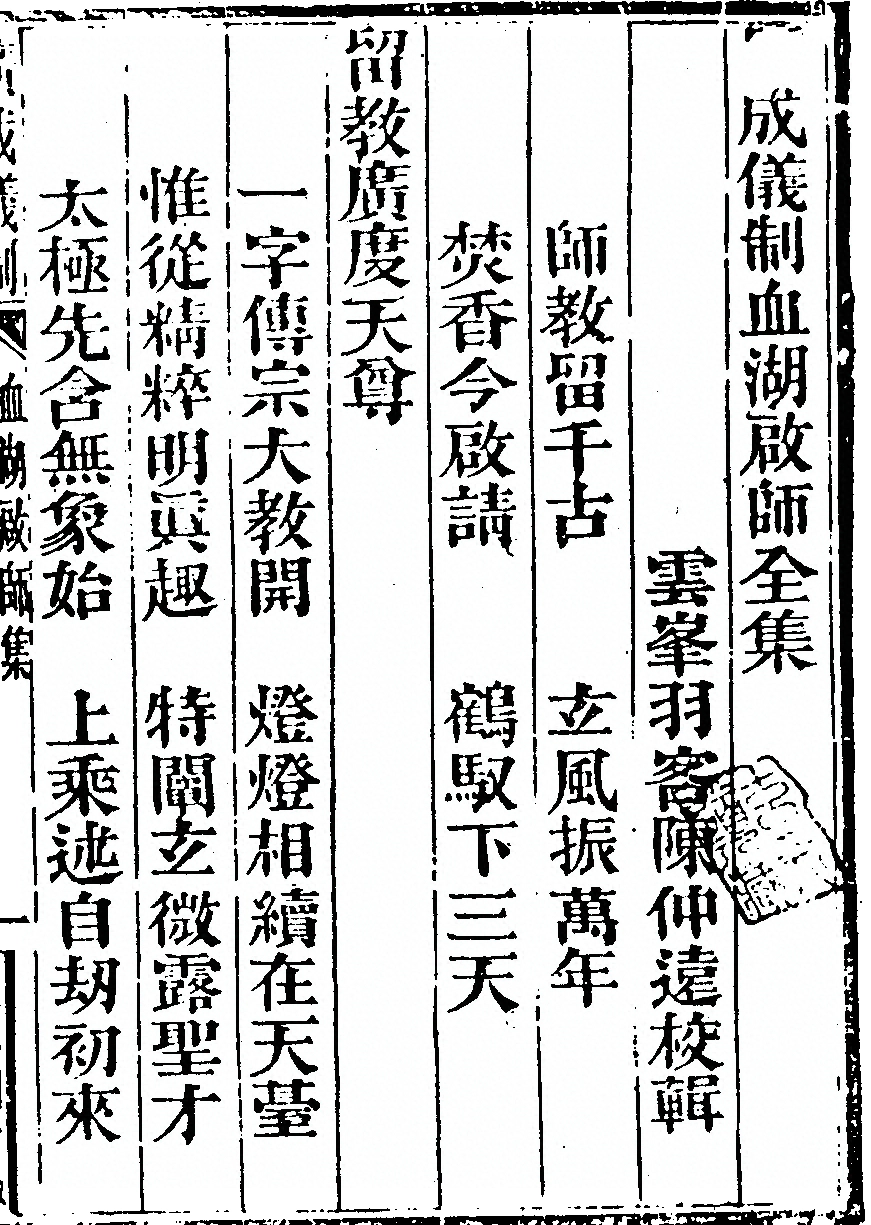 成儀制血湖啟師全集
雲峯羽客陳仲遠校輯
師教留千古 玄風振萬年
焚香今啟請 鶴馭下三天
留教廣度天尊
一字傳宗大教開 燈燈相續在天臺
惟從精粹明眞趣 特闡玄微露聖才
太極先含無象始 上乘述自刼初來
成儀制 血湖啟師集